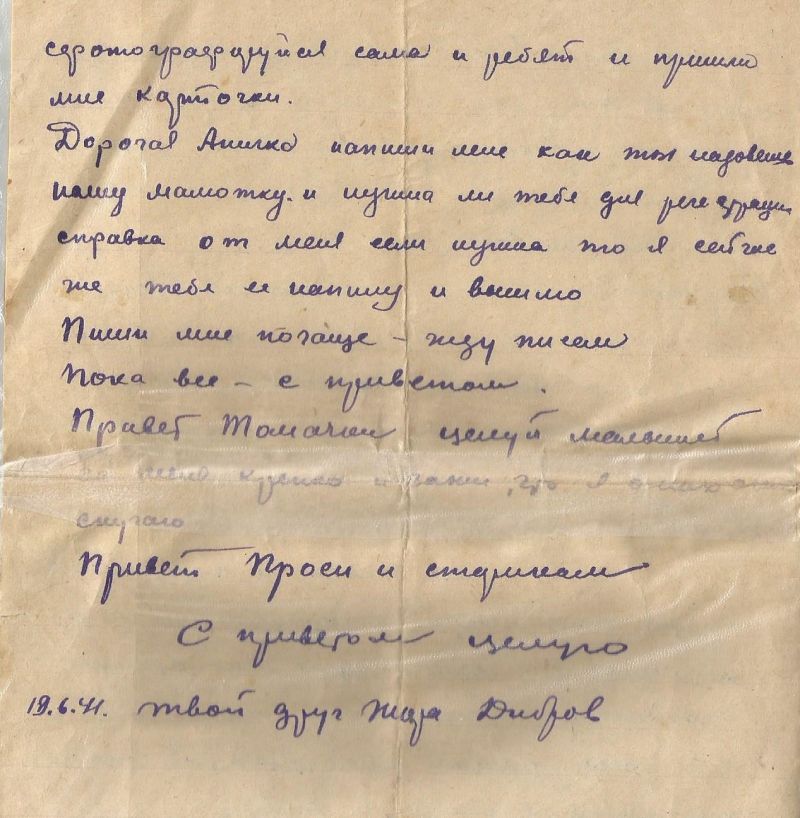 сфотографируйся сама и ребят и пришли
мне карточки.
Дорогая напиши мне как ты
нашу и нужна ли тебе для регистрации
справка от меня если нужна то я сейчас
же тебе ее напишу и вышлю
Пиши мне почаще – жду писем
Пока все – с приветом.
Привет Томочки целуй
за меня крепко и что я
скучаю
Привет Проси и старикам
С приветом целую
19.6.41. твой друг Дибров